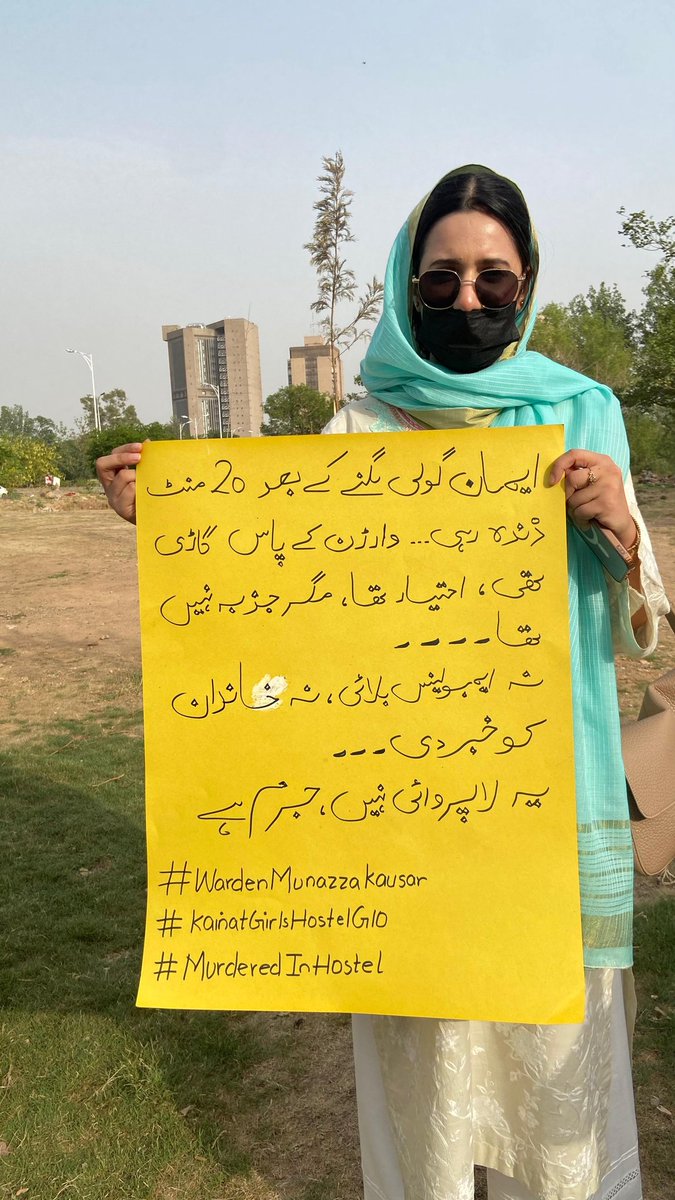 ایمان گولی لگنے کے بعد 20 منٹ
زندہ رہی... وارڈن کے پاس گاڑی
تھی، اختیار تھا، مگر جذبہ نہیں
تھا----
نہ ایمبولینس بلائی، نہ خاندان
کو خبر دی---
یہ لاپروائی نہیں، جرم ہے
#WardenMunazzaKausar
#KainatGirlsHostelG10
#MurderedInHostel